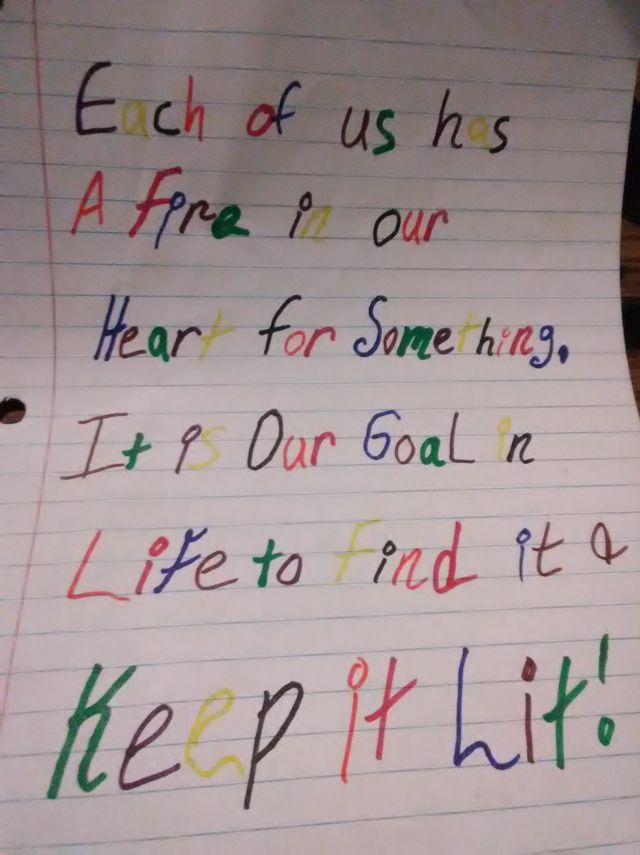 Each of us has
A Fire in our
Heart for Something.
It is Our Goal in
Life to Find it &
Keep it Lit!